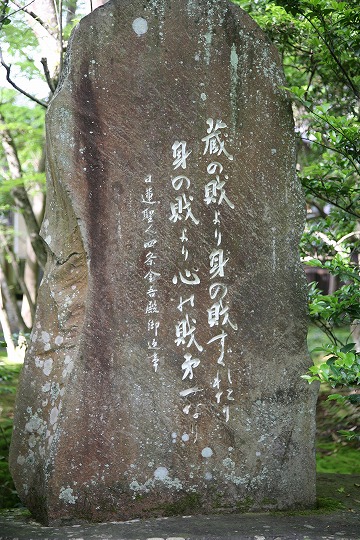 蔵の財より身の財すぐれたり
身の財より心の財第一なり
日蓮聖人四条金吾殿御返事